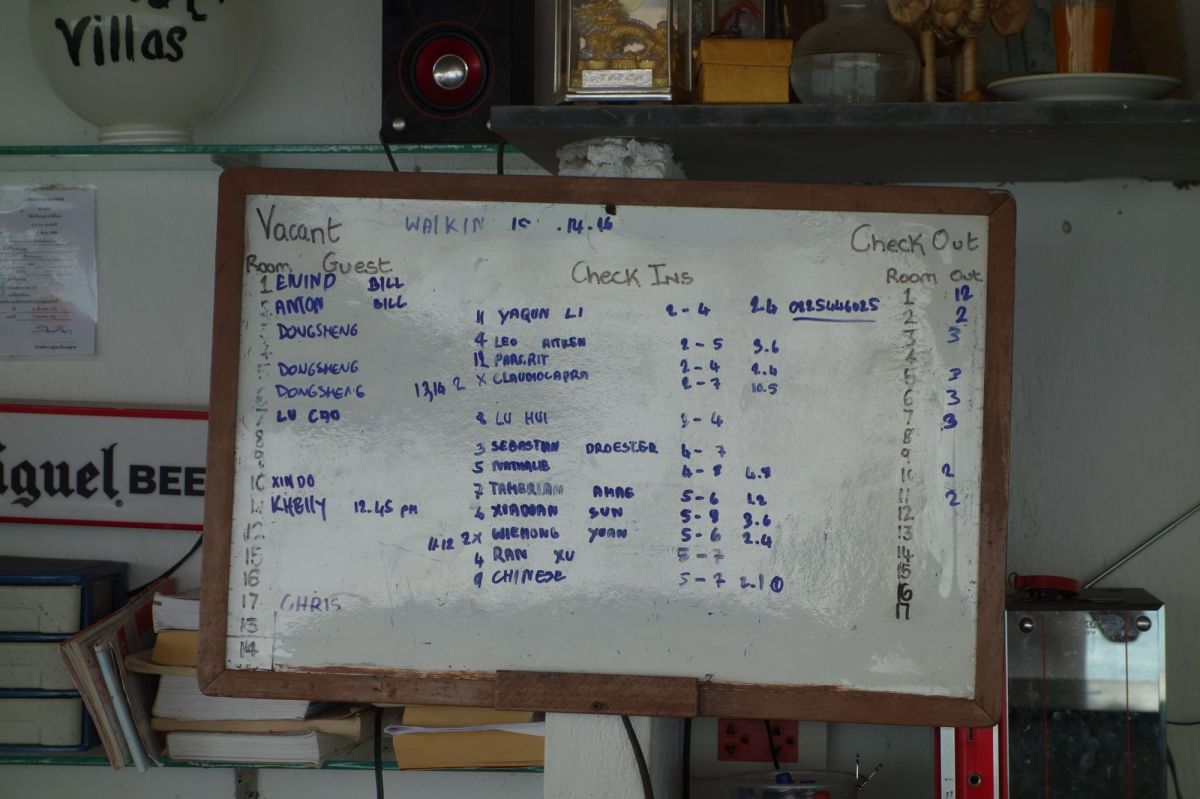 Villas
Vacant WALKIN .14.16 Check Out
Room Guest Check Ins Room Out
1 ENIND BILL 1 12
ANTON BILL 11 YAQUN LI 2-4 2.4 0825446025 2 2
DONGSHENG 4 LEO AITKEN 2-5 3.6 3 3
12 2-4 2.4 4
DONGSHENG X CLAUDIOCAPRA 2-7 10.5 5
DONGSHENG 13,14 2 6 3
LU CAO 8 LU HUI 2-4 7 3
8 3 SEBASTIAN DROESTER 4-7 8
9 5 NATHALIE 4-8 4.8 9
10 XINDO 7 AMAG 5-6 12 10 2
11 KHELLY 12.45 PM 6 XIAODAN SUN 5-8 3.6 11 2
11.12 2X WIEHONG YUAN 5-6 2.4 12
13
4 RAN XU 5-7 14
15 9 CHINESE 5-7 2.1 15
16 16
17 CHRIS 17
13
14
iguel BEE